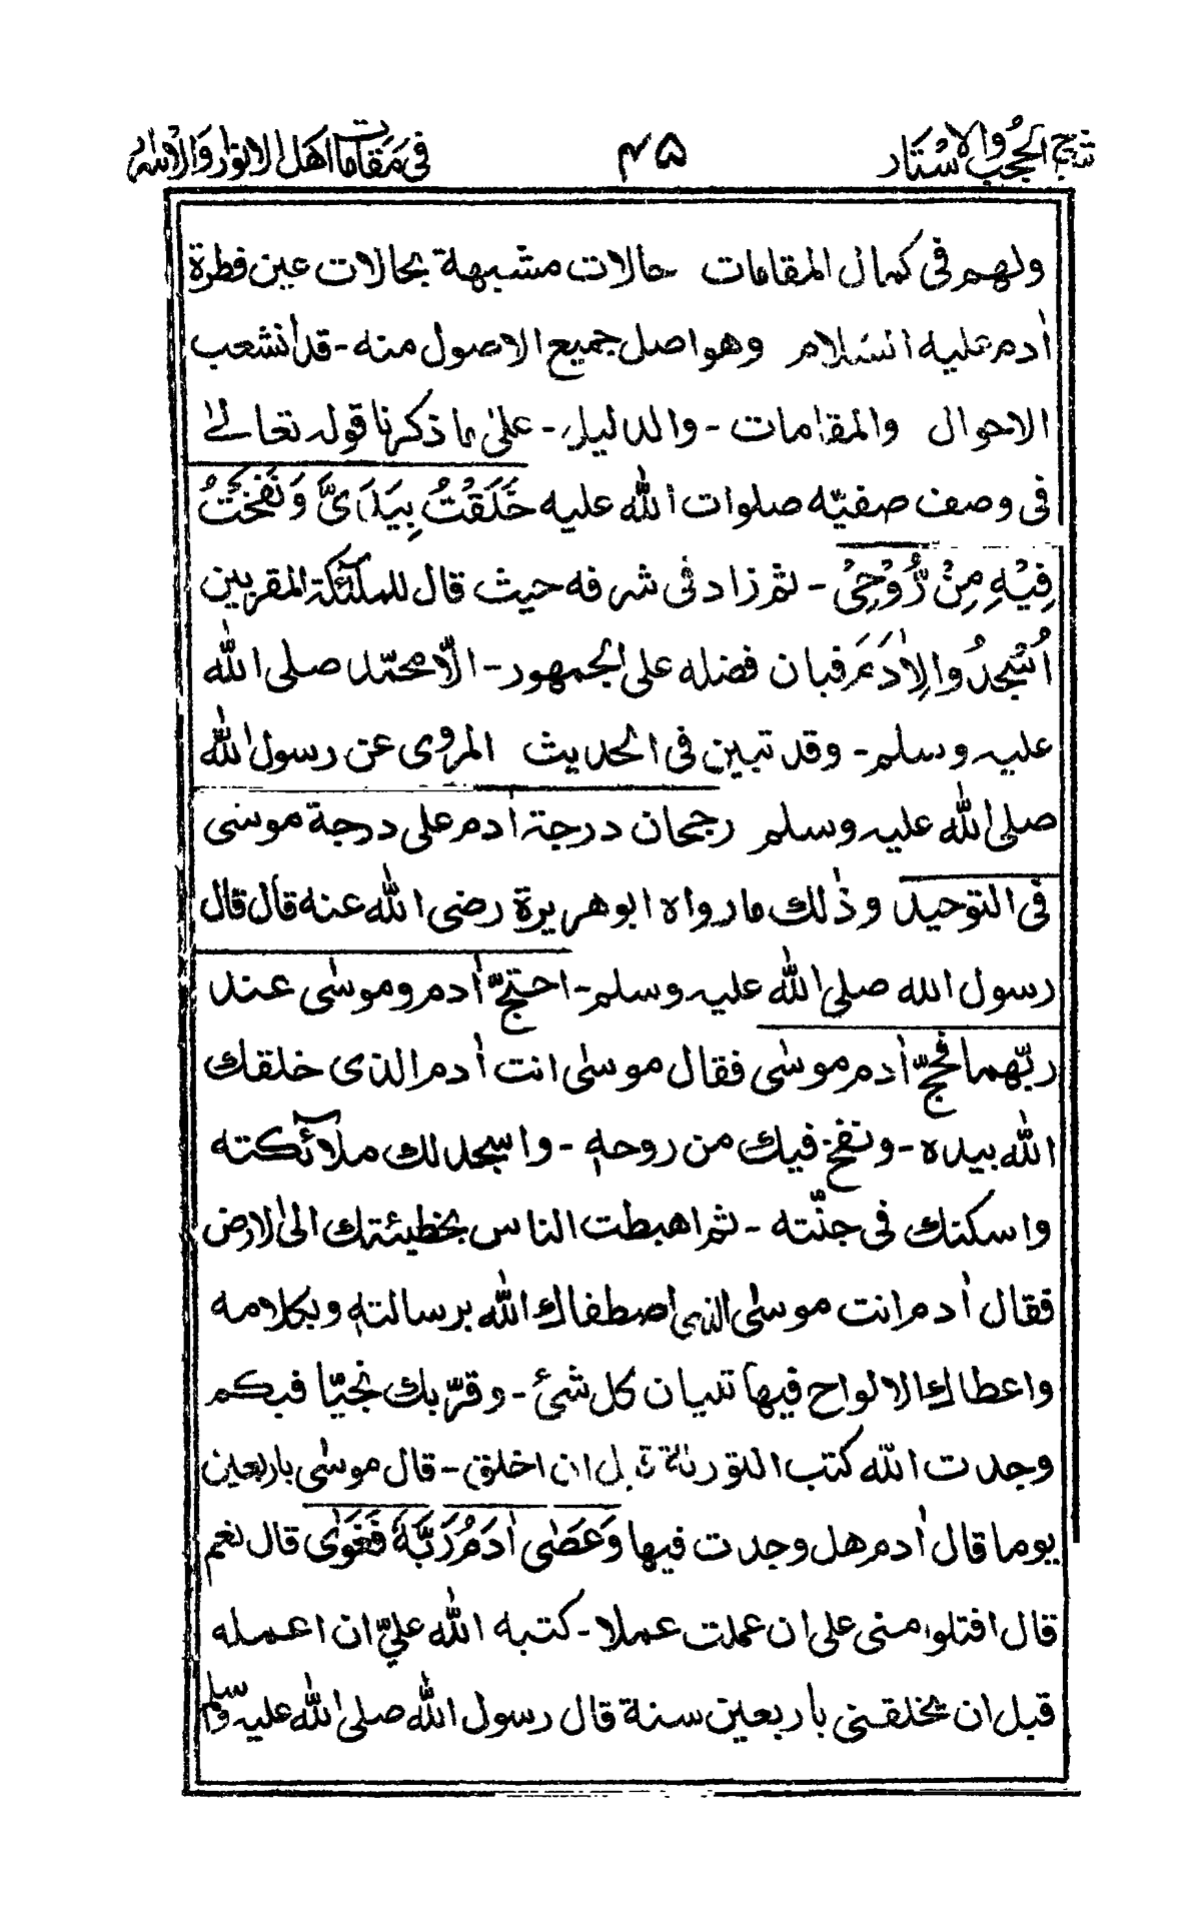 تہیج الحجب والاستار ۴۵ فی مقامات اهل الانوار والاسرار
ولهم فی کمال المقامات حالات مشبهة بحالات عین فطرة
اٰدم علیه السلام وهو اصل جمیع الاصول منه - قد انشعب
الاحوال والمقامات - والدلیل - علیٰ ما ذکرنا قوله تعالیٰ
فی وصف صفیّه صلوات الله علیه خَلَقْتُ بِیَدَیَّ وَنَفَخْتُ
فِیْهِ مِنْ رُّوْحِیْ - ثم زاد فی شرفه حیث قال للملٰٓئکة المقربین
اُسْجُدُوا لِاٰدَمَ فبان فضله علی الجمهور - الّا محمّد صلی الله
علیه وسلم - وقد تبین فی الحدیث المروی عن رسول الله
صلی الله علیه وسلم رجحان درجة اٰدم علی درجة موسٰی
فی التوحید وذٰلك ما رواه ابوهریرة رضی الله عنه قال قال
رسول الله صلی الله علیه وسلم - احتجّ اٰدم وموسٰی عند
ربّهما فحجّ اٰدم موسٰی فقال موسٰی انت اٰدم الذی خلقك
الله بیده - ونفخ فیك من روحهٖ - واسجد لك ملآئکته
واسکنك فی جنّته - ثم اهبطت الناس بخطیئتك الی الارض
فقال اٰدم انت موسٰی الذی اصطفاك الله برسالتهٖ وبکلامه
واعطاك الالواح فیها تبیان کل شیٔ - وقرّبك نجیّا فبکم
وجدت الله کتب التورٰىة قبل ان اخلق - قال موسٰی باربعین
یوما قال اٰدم هل وجدت فیها وَعَصٰی اٰدَمُ رَبَّهٗ فَغَوٰی قال نعم
قال افتلومنی علی ان عملت عملا - کتبه الله علیّ ان اعمله
قبل ان یخلقنی باربعین سنة قال رسول الله صلی الله علیه وسلم